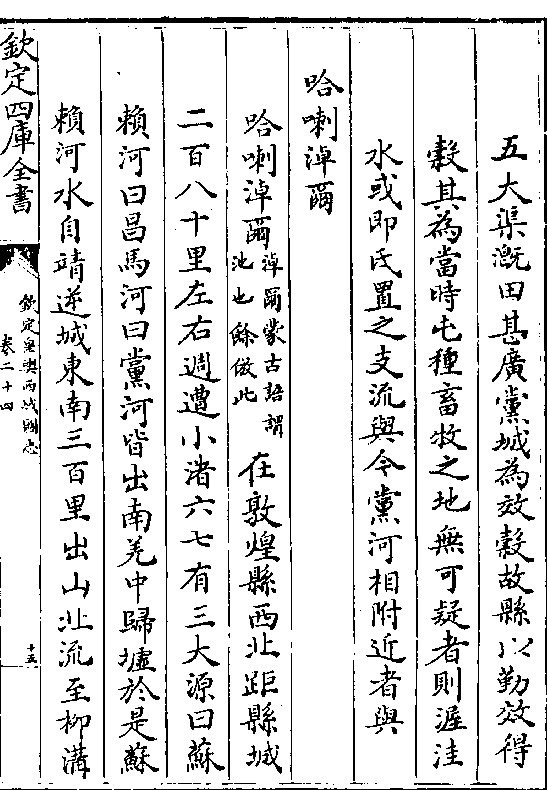 五大渠溉田甚廣黨城為效穀故縣以勤效得
穀其為當時屯種畜牧之地無可疑者則渥洼
水或即氐置之支流與今黨河相附近者與
哈喇淖爾
哈喇淖爾淖爾蒙古語謂池也餘倣此在敦煌縣西北距縣城
二百八十里左右週遭小渚六七有三大源曰蘇
賴河曰昌馬河曰黨河皆出南羌中歸墟於是蘇
賴河水自靖逆城東南三百里出山北流至柳溝
欽定四庫全書
欽定皇輿西域圖志
卷二十四
十五